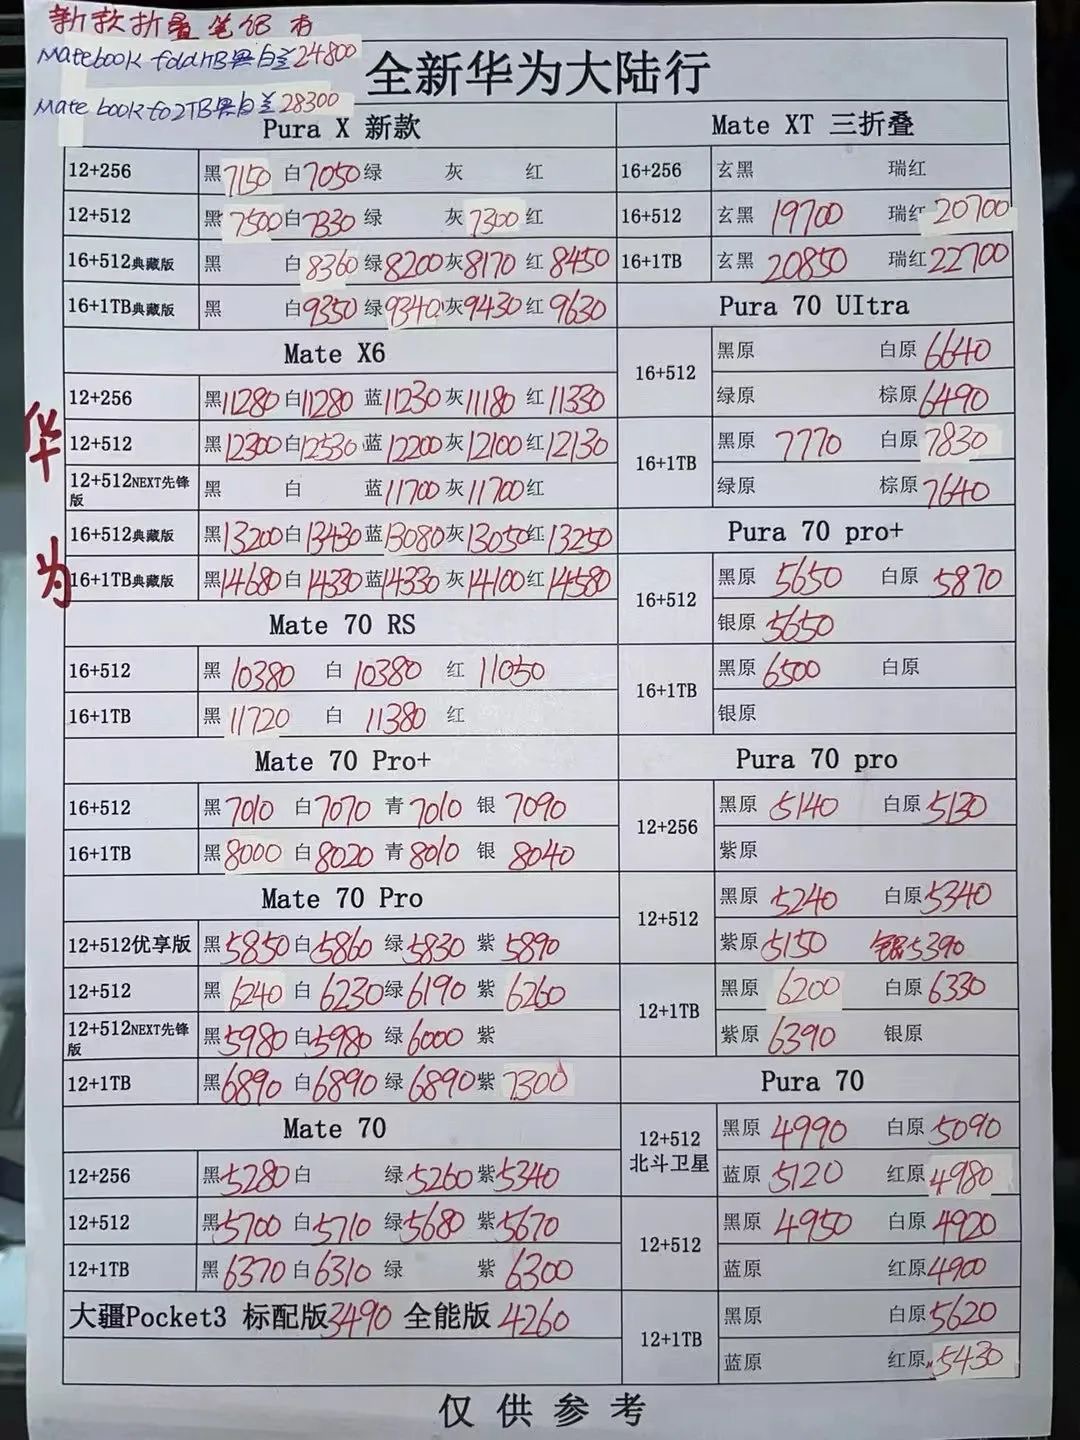 新款折叠笔记本
Matebook fold 1TB黑白兰24800
Mate book fo2TB黑白兰28300
全新华为大陆行
华为
Pura X 新款
12+256 黑7150 白7050 绿 灰 红
12+512 黑7500 白7330 绿 灰7300 红
16+512典藏版 黑 白8360 绿8200 灰8170 红8450
16+1TB典藏版 黑 白9350 绿9340 灰9430 红9630
Mate X6
12+256 黑11280 白11280 蓝11230 灰11180 红11330
12+512 黑12300 白12530 蓝12200 灰12100 红12130
12+512NEXT先锋版 黑 白 蓝11700 灰11700 红
16+512典藏版 黑13200 白13430 蓝13080 灰13050 红13250
16+1TB典藏版 黑14680 白14330 蓝14330 灰14100 红14580
Mate 70 RS
16+512 黑10380 白10380 红11050
16+1TB 黑11720 白11380 红
Mate 70 Pro+
16+512 黑7010 白7070 青7010 银7090
16+1TB 黑8000 白8020 青8010 银8040
Mate 70 Pro
12+512优享版 黑5850 白5860 绿5830 紫5890
12+512 黑6240 白6230 绿6190 紫6260
12+512NEXT先锋版 黑5980 白5980 绿6000 紫
12+1TB 黑6890 白6890 绿6890 紫7300
Mate 70
12+256 黑5280 白 绿5260 紫5340
12+512 黑5700 白5710 绿5680 紫5670
12+1TB 黑6370 白6310 绿 紫6300
大疆Pocket3 标配版3490 全能版4260
Mate XT 三折叠
16+256 玄黑 瑞红
16+512 玄黑19700 瑞红20700
16+1TB 玄黑20850 瑞红22700
Pura 70 UItra
16+512
黑原 白原6640
绿原 棕原6490
16+1TB
黑原7770 白原7830
绿原 棕原7640
Pura 70 pro+
16+512
黑原5650 白原5870
银原5650
16+1TB
黑原6500 白原
银原
Pura 70 pro
12+256
黑原5140 白原5130
紫原
12+512
黑原5240 白原5340
紫原5150 银5390
12+1TB
黑原6200 白原6330
紫原6390 银原
Pura 70
12+512
北斗卫星
黑原4990 白原5090
蓝原5120 红原4980
12+512
黑原4950 白原4920
蓝原 红原4900
12+1TB
黑原 白原5620
蓝原 红原5430
仅供参考